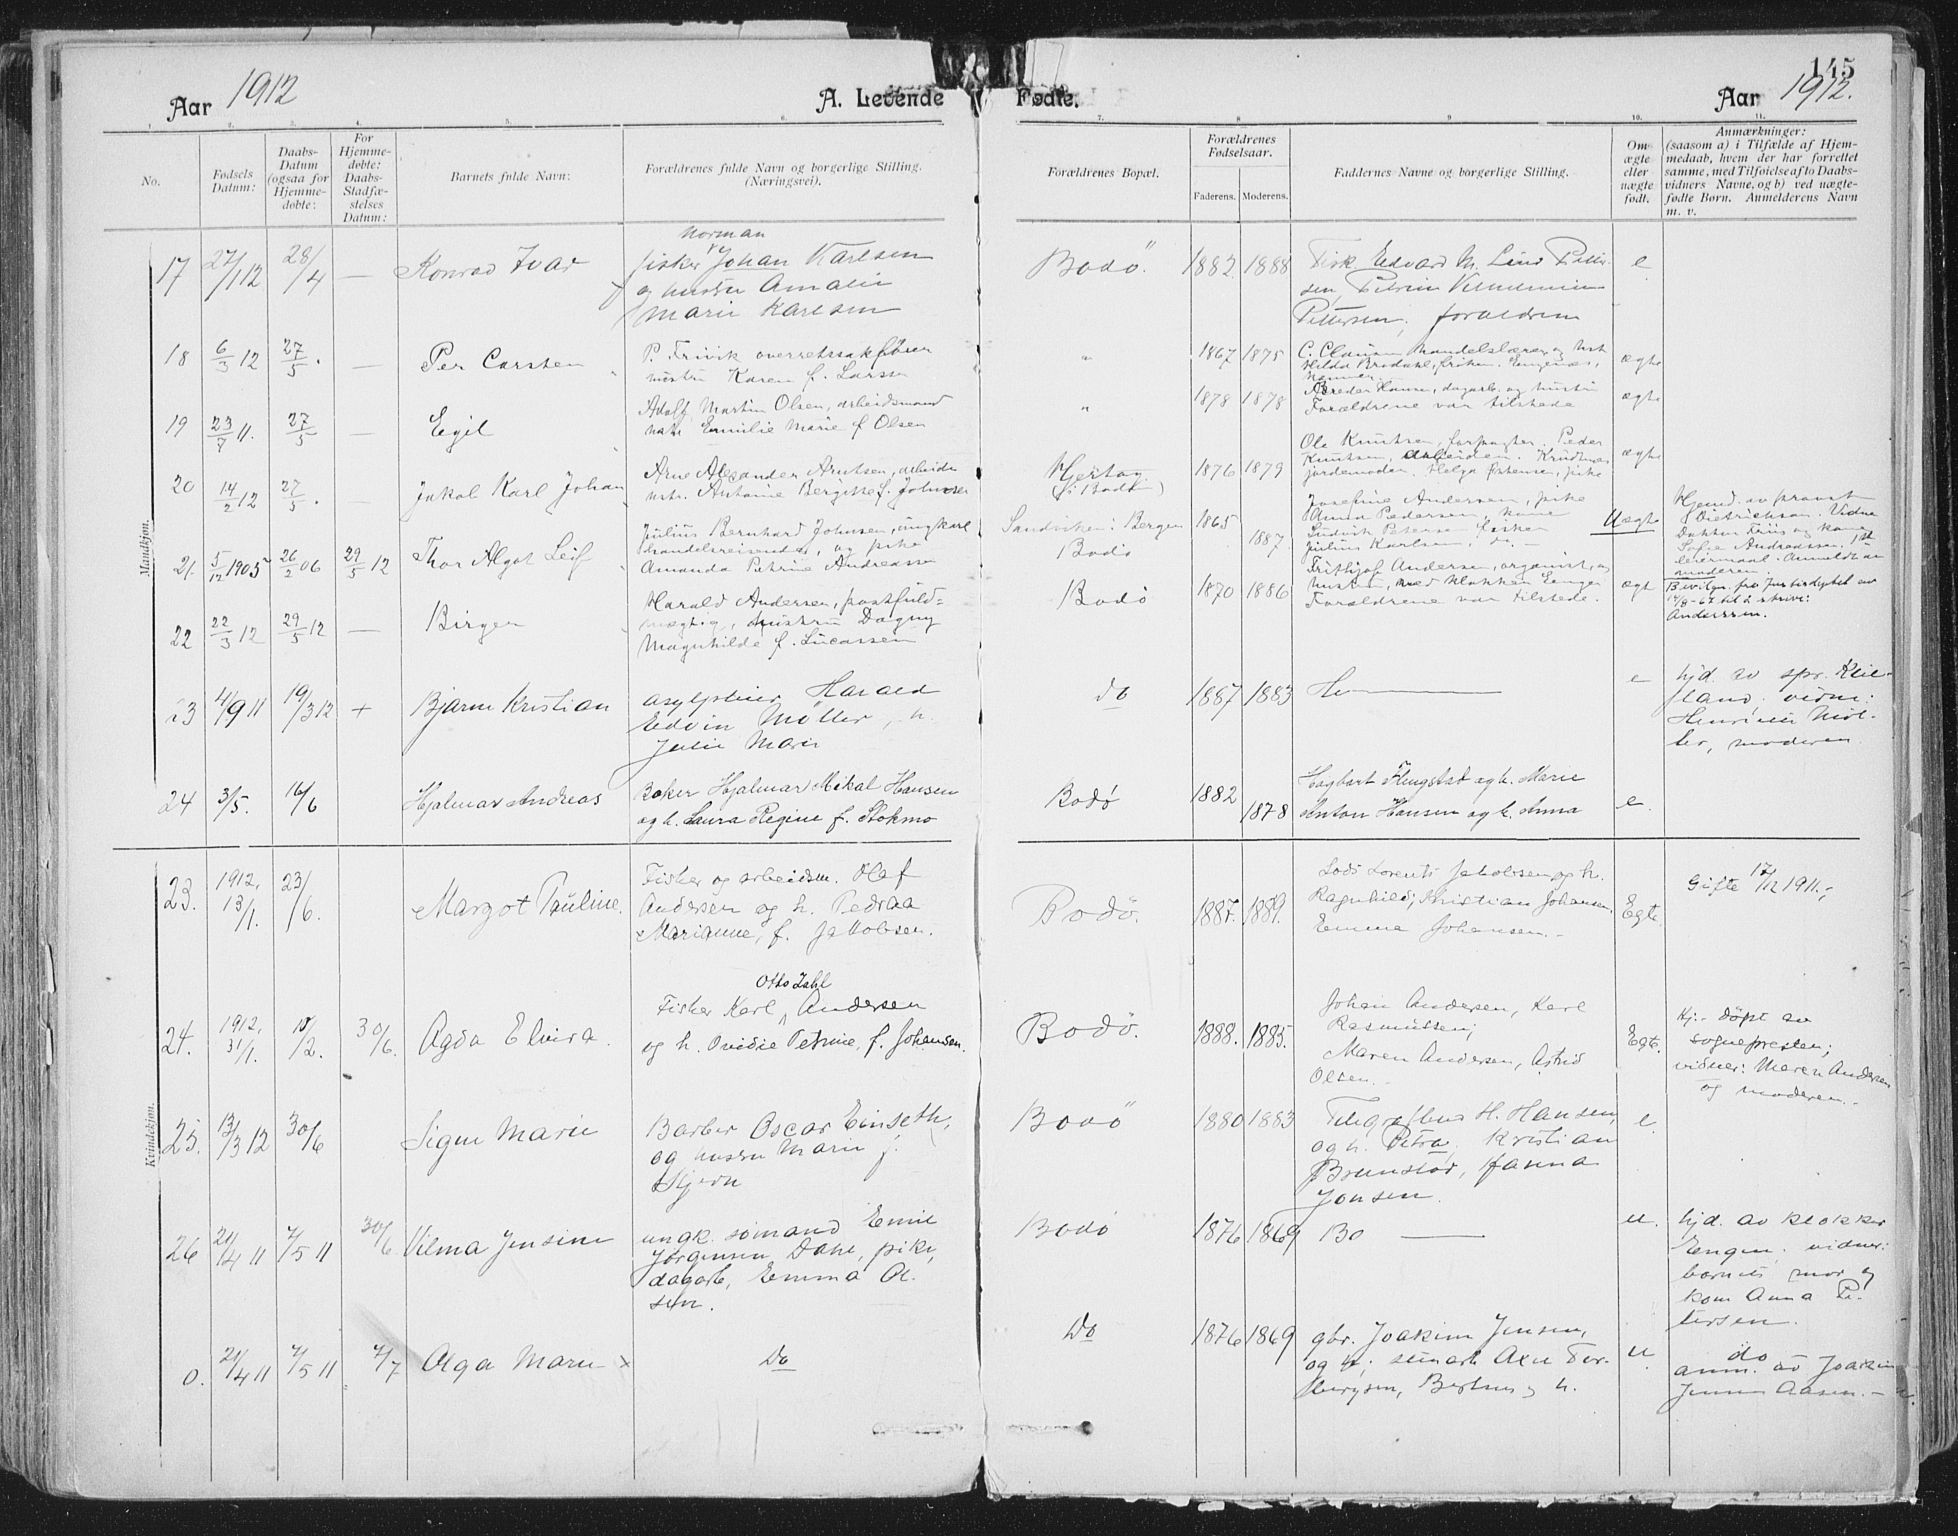 145
Aar 1912
A. Levende
Fødte.
Aar 1912.
1. 2. 3. 4. 5. 6. 7. 8. 9. 10. 11.
No.
Fødsels Datum:
Daabs-Datum (ogsaa for Hjemmedøbte:
For Hjemmedøbte: Daabs-Stadfæstelses Datum:
Barnets fulde Navn:
Forældrenes fulde Navn og borgerlige Stilling. (Næringsvei).
Forældrenes Bopæl.
Forældrenes Fødselsaar.
Faderens. Moderens.
Faddernes Navne og borgerlige Stilling.
Om ægte eller uægte født.
Anmærkninger:
(saasom a) i Tilfælde af Hjemmedaab, hvem der har forrettet samme, med Tilføielse af to Daabsvidners Navne, og b) ved uægtefødte Børn. Anmelderens Navn m. v.
Mandkjøn.
17 27/1 12 28/4 — Konrad Ivar
Norman
fisker Johan Karlsen
og hustru Amalie
Marie Karlsen
Bodö. 1882 1888
Fisk. Edvard M. Lind Petter-
sen,
Pettersen, forældrene
e
18 6/3 12 27/5. — Per Carsten
P. Trivik overretssakfører
hustru Karen f. Larsen
" 1867 1875
C. Clausen handelslærer og hst
ægte
19 23/7 11. 27/5 — Egil
Adolf Martin Olsen, arbeidsmand
hstr. Emilie Marie f Olsen
" 1878 1878
Hansen, dagarb. og hustru
Forældrene var tilstede
ægte
20 14/2 12 27/5. — Jakob Karl Johan
Arne Alexander Arntsen, arbeider
hstr. Antonie Bergitte f. Johnsen
Hjertøy
(i Bodø)
1876 1879
Ole Knutsen, forpagter. Peder
Knutsen,
jordemoder. Helga pike
ægte
21. 5/12 1905 26/2 06 29/5 12 Thor Algot Leif
Julius Bernhard Johnsen, ungkarl
handelsreisende, og pike
Amanda Petrine Andreassen
Sandviken i Bergen 1865
Bodø 1887
Josefine Andersen, pike
Anna Pedersen, kone
Ludvik Petersen fisker
Julius Karlsen, do. —
Uægte
Hjemd. av provst
Dietrichson. Vidne
Doktor Friis og kone
Sofie Andreassen. 1ste
leiermaal. Anmeldt av
moderen.
22 22/3 12 29/5 12 — Birger
Harald Andersen, postfuld-
mægtig, hustru Dagny
Magnhilde f. Lucassen
Bodø 1870 1886
Frithjof Andersen, organist, og
hustru, med klokker Engen
Forældrene var tilstede.
ægt
Bevilgn. fra Justisdeptet av
14/8-67 til å skrive:
Anderssen.
23 4/9 11 19/3 12 + Bjarne Kristian
asylpleier Harald
Edvin Möller, h.
Julie Marie
do 1887 1883 H——— e
hjd. av spr. Kiel-
land. vidne:
Henrikie Möl-
ler, moderen.
24 3/5. 16/6 Hjalmar Andreas
Baker Hjalmar Mikal Hansen
og h. Laura Regine f. Stokmo
Bodø 1882 1878
Hagbart Flengstad og h. Marie
Anton Hansen og h. Anna
e.
Kvindekjøn.
23. 1912. 13/1. 23/6. Margot Pauline.
Fisker og arbeidsm. Olaf
Andersen og h. Pedraa
Marianne, f. Jakobsen.
Bodö. 1887. 1889.
Lods Lorents Jakobsen og h.
Ragnhild; Kristian Johansen,
Emma Johansen. –
Egte.
Gifte 17/12 1911.,-
24. 1912. 31/1. 10/2. 30/6. Agda Elvira.
Otto Zahl
Fisker Karl Andersen
og h. Ovidie Petrine, f. Johansen.
Bodö. 1888. 1885.
Johan Andersen, Karl
Rasmussen;
Maren Andersen, Astrid
Olsen. –
Egte.
Hj.- döpt av
sognepresten;
vidner: Maren Andersen
og moderen. –
25. 13/3 12 30/6 Signe Marie
Barber Oscar Einseth,
og hustru Marie f.
Skjevn
Bodö 1880 1883
H. Hansen,
og h. Petra, Kristian
Brunstad, Hanna
Jonsen.
e.
26 21/4 11 7/5 11 30/6. Vilma Jensine
ungk. sömand Emil
Jørgensen Dahl, pike,
dagarb, Emma Ol-
sen.
Bodø 1876 1869 Bo ——— u.
hjd. av klokker
Engen. vidner:
barnets mor og
kone Anna Pe-
tersen.
0. 21/4 11 7/5 11 7/7 Olga Marie x
Do
Do 1876 1869
gbr. Joakim Jensen,
og h;
bergsen, h.
u
do
anm. av Joakim
Jensen Aasen. –